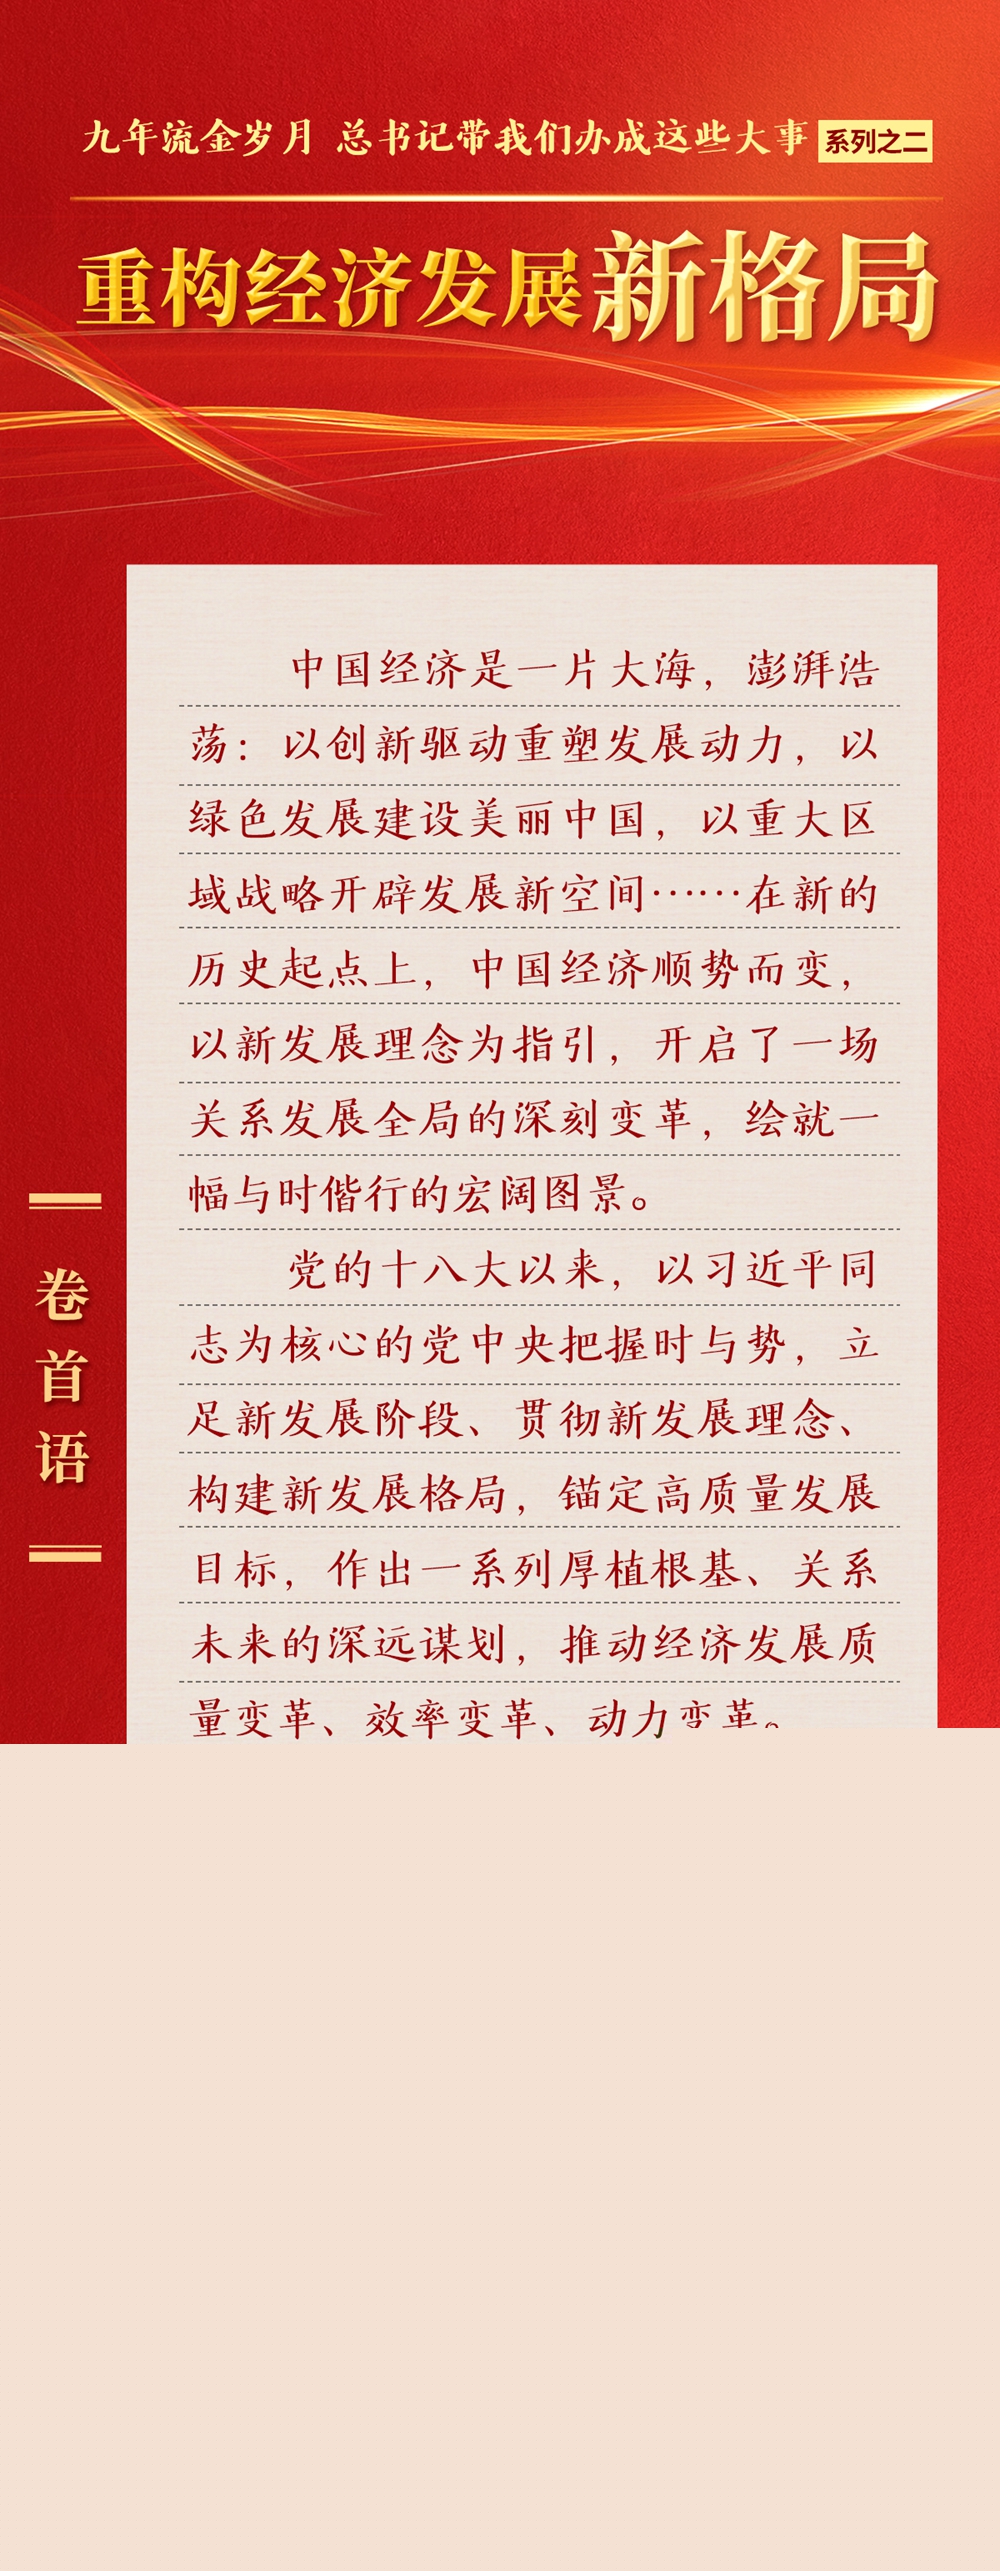 九年流金岁月 总书记带我们办成这些大事 系列之二
重构经济发展新格局
卷首语
中国经济是一片大海，澎湃浩
荡：以创新驱动重塑发展动力，以
绿色发展建设美丽中国，以重大区
域战略开辟发展新空间……在新的
历史起点上，中国经济顺势而变，
以新发展理念为指引，开启了一场
关系发展全局的深刻变革，绘就一
幅与时偕行的宏阔图景。
党的十八大以来，以习近平同
志为核心的党中央把握时与势，立
足新发展阶段、贯彻新发展理念、
构建新发展格局，锚定高质量发展
目标，作出一系列厚植根基、关系
未来的深远谋划，推动经济发展质
量变革、效率变革、动力变革。